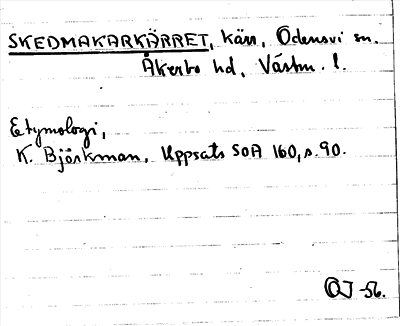 SKEDMAKARKÄRRET, kärr, Odensvi sn.
Åkerbo hd, Västm. l.
Etymologi,
K. Björkman, Uppsats SOA 160, s. 90.
OJ -56.